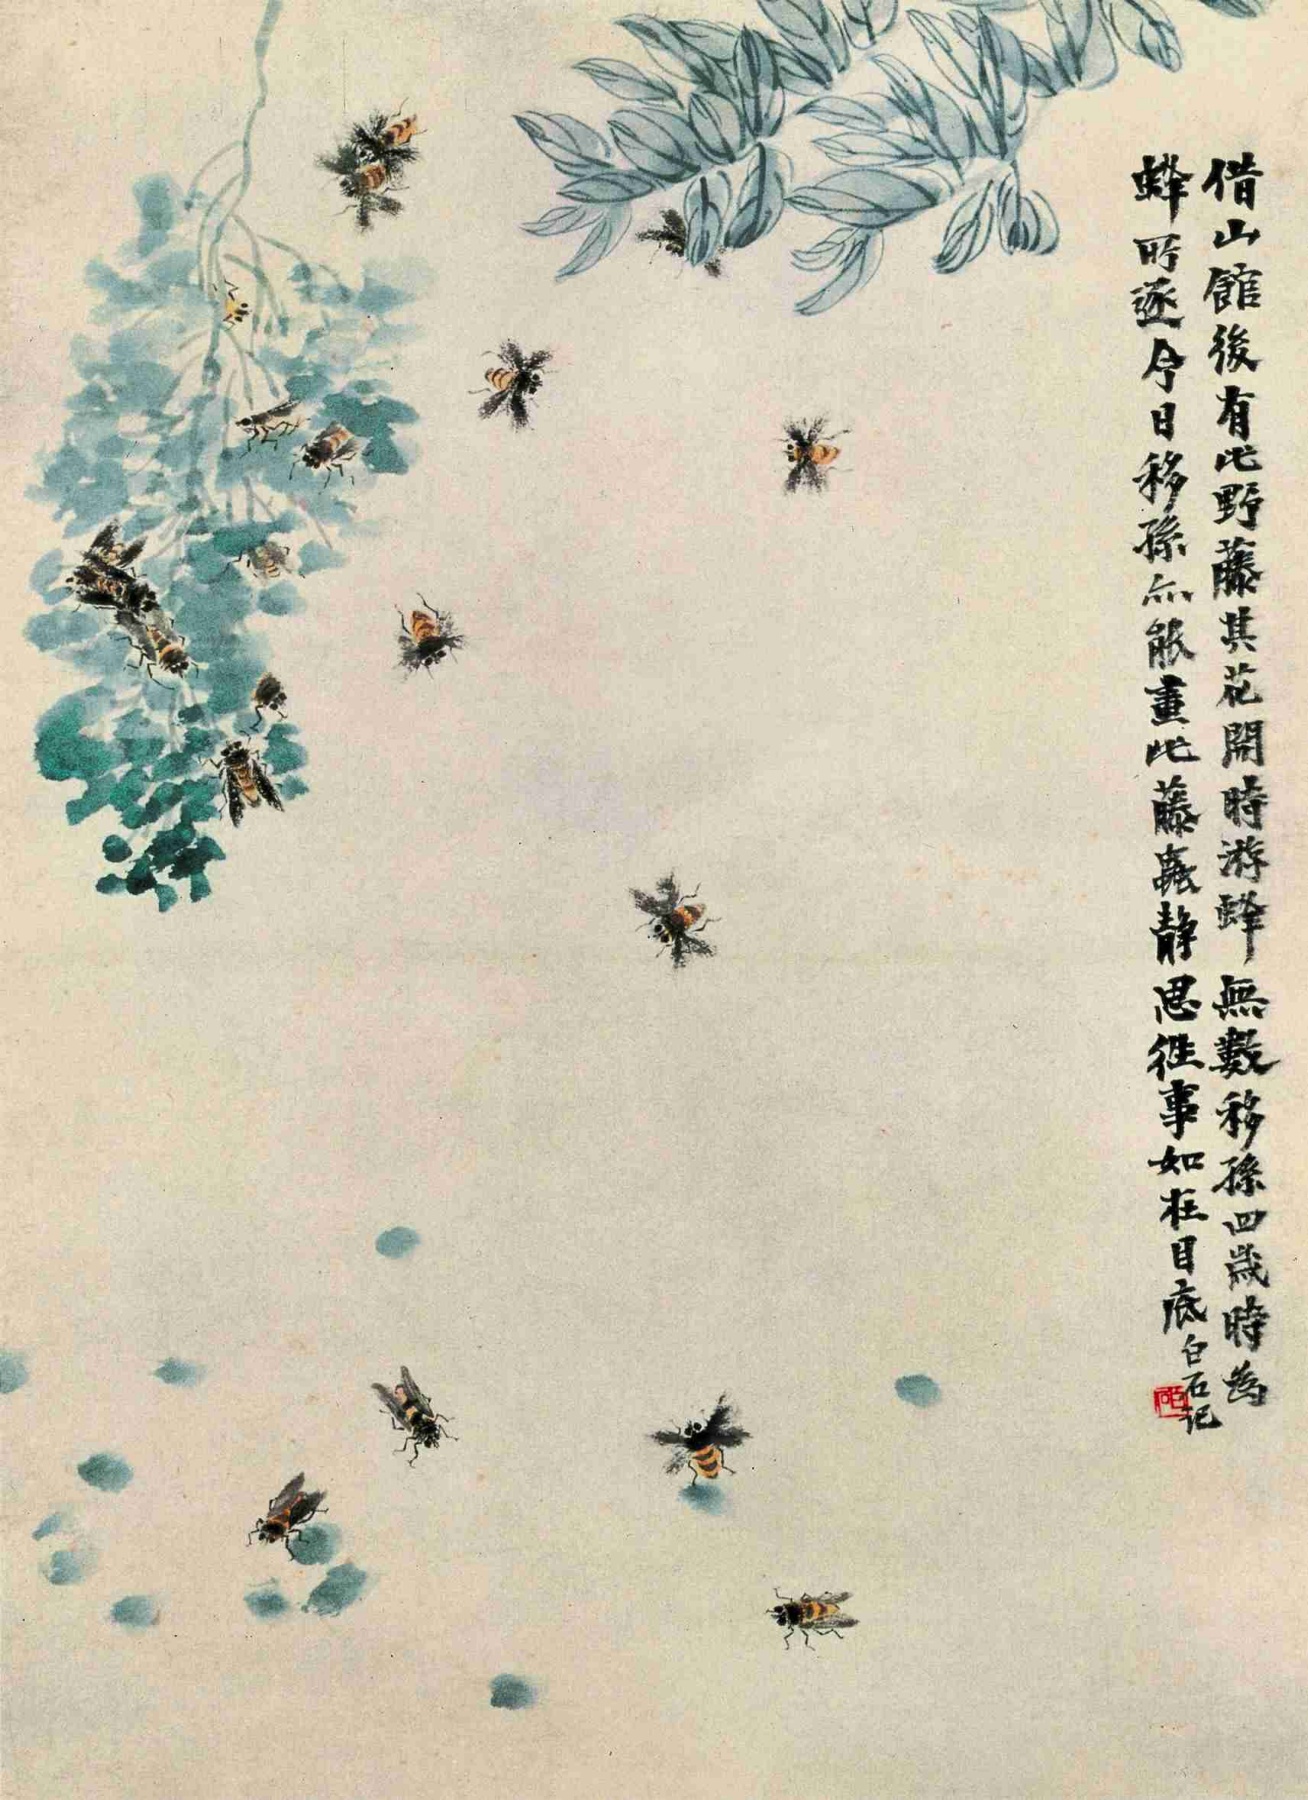 借山館後有此野藤其花開時游蜂無數移孫四歲時為
蜂所逐今日移孫亦能畫此藤蟲靜思往事如在目底
白石記